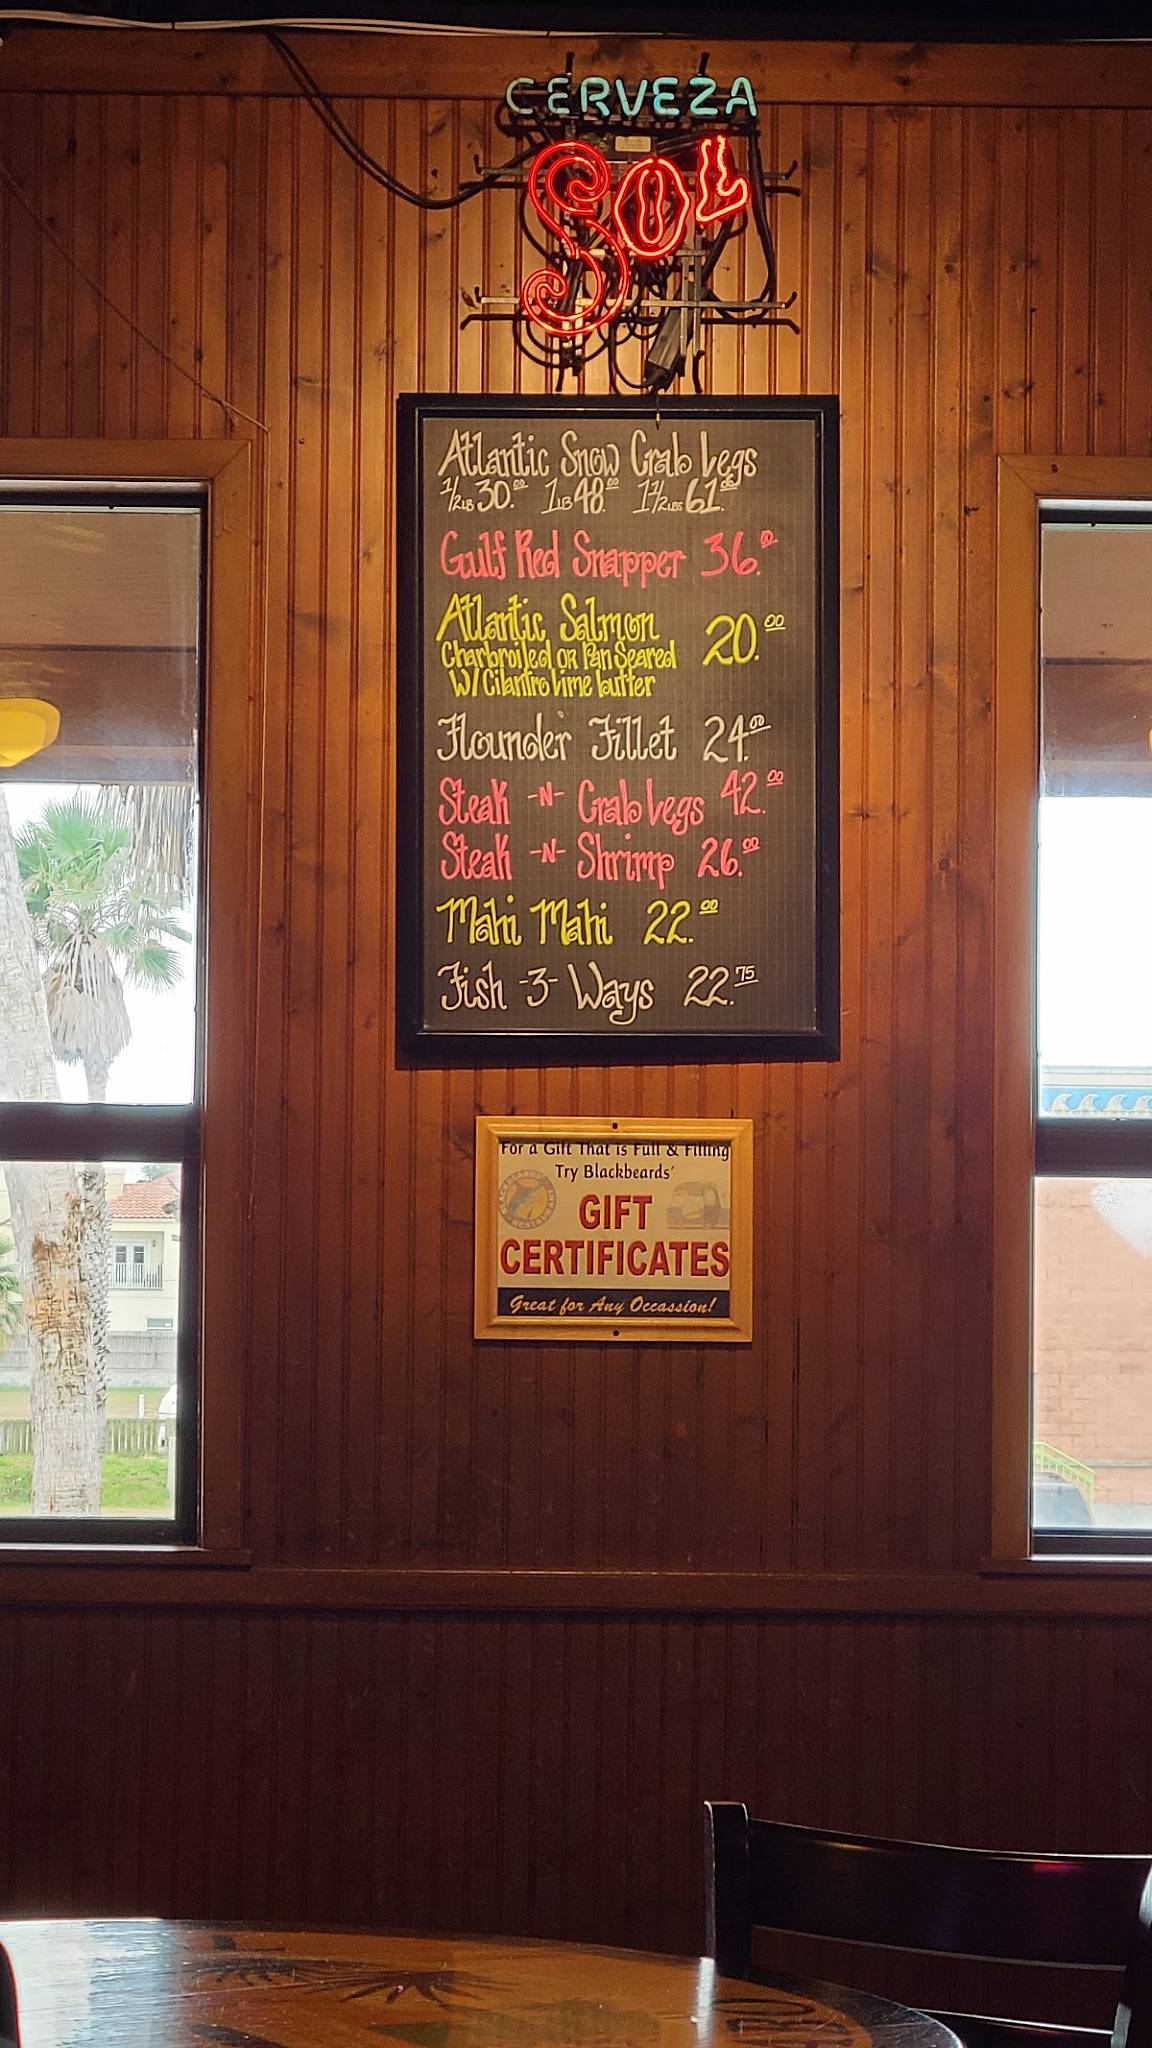 CERVEZA
SOL
Atlantic Snow Crab Legs
1/2LB 30.00 1LB 48.00 1 1/2LBS 61.00
Gulf Red Snapper 36.00
Atlantic Salmon 20.00
Charbroiled or Pan Seared
W/ Cilantro Lime butter
Flounder Fillet 24.00
Steak -N- Crab Legs 42.00
Steak -N- Shrimp 26.00
Mahi Mahi 22.00
Fish -3- Ways 22.75
For a Gift That is Full & Filling
Try Blackbeards'
GIFT
CERTIFICATES
Great for Any Occassion!